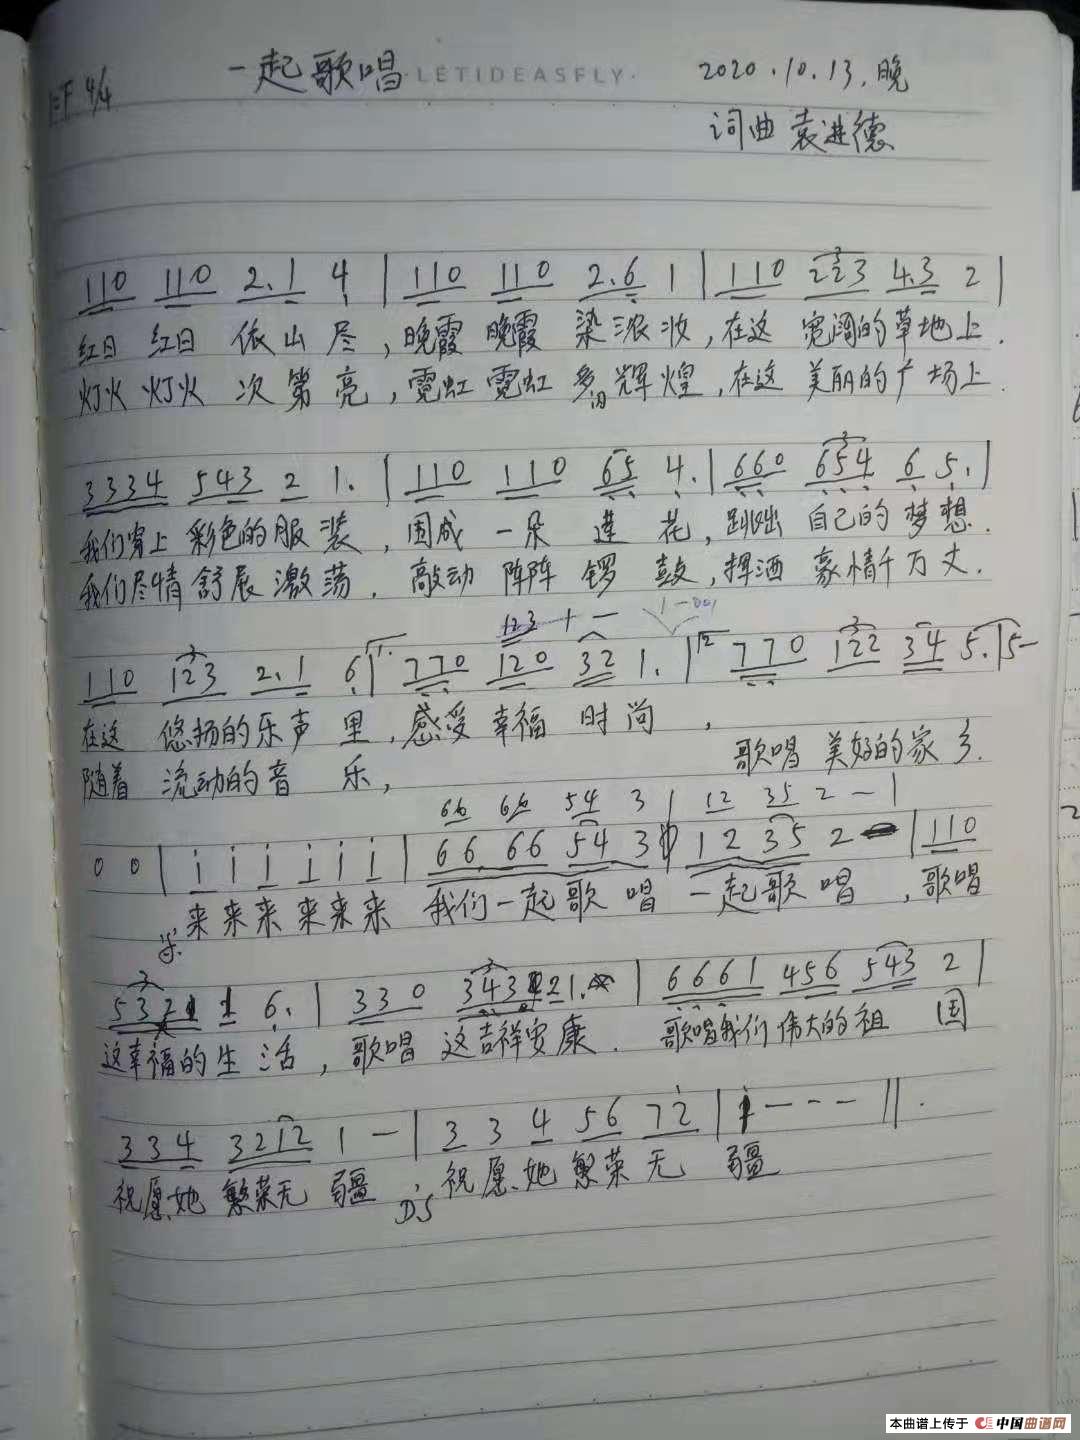 一起歌唱 · LETIDEASFLY · 2020.10.13.晚
1=F 4/4
词曲 袁进德
110 110 2.1 4 | 110 110 2.6 1 | 110 223 4.3 2 |
红日 红日 依山尽,晚霞 晚霞 染浓妆,在这 宽阔的草地上.
灯火 灯火 次第亮,霓虹 霓虹 多辉煌,在这 美丽的广场上.
3334 543 2 1. | 110 110 65 4. | 660 654 6 5. |
我们穿上 彩色的服装,围成 一朵 莲花,跳出 自己的梦想.
我们尽情 舒展激荡.敲动 阵阵 锣鼓,挥洒 豪情千万丈.
123 1 —
110 123 2.1 6 | 1. 770 120 32 1. | 2 770 122 34 5. | 5—
在这 悠扬的乐声里,感受 幸福 时尚,
歌唱 美好的家乡.
随着 流动的音乐,
66 66 54 3 | 12 35 2 — |
0 0 | i i i i i i | 66 66 54 3 | 12 35 2 — | 110
来来来来来来 我们一起歌唱 一起歌唱,歌唱
532 1 6. | 330 343 21. | 6661 456 543 2 |
这幸福的生活,歌唱 这吉祥安康.歌唱我们伟大的祖国
334 3212 1 — | 3 3 4 56 72 | i — — — ‖.
祝愿她 繁荣无疆,祝愿她繁荣无疆
DS
本曲谱上传于 中国曲谱网